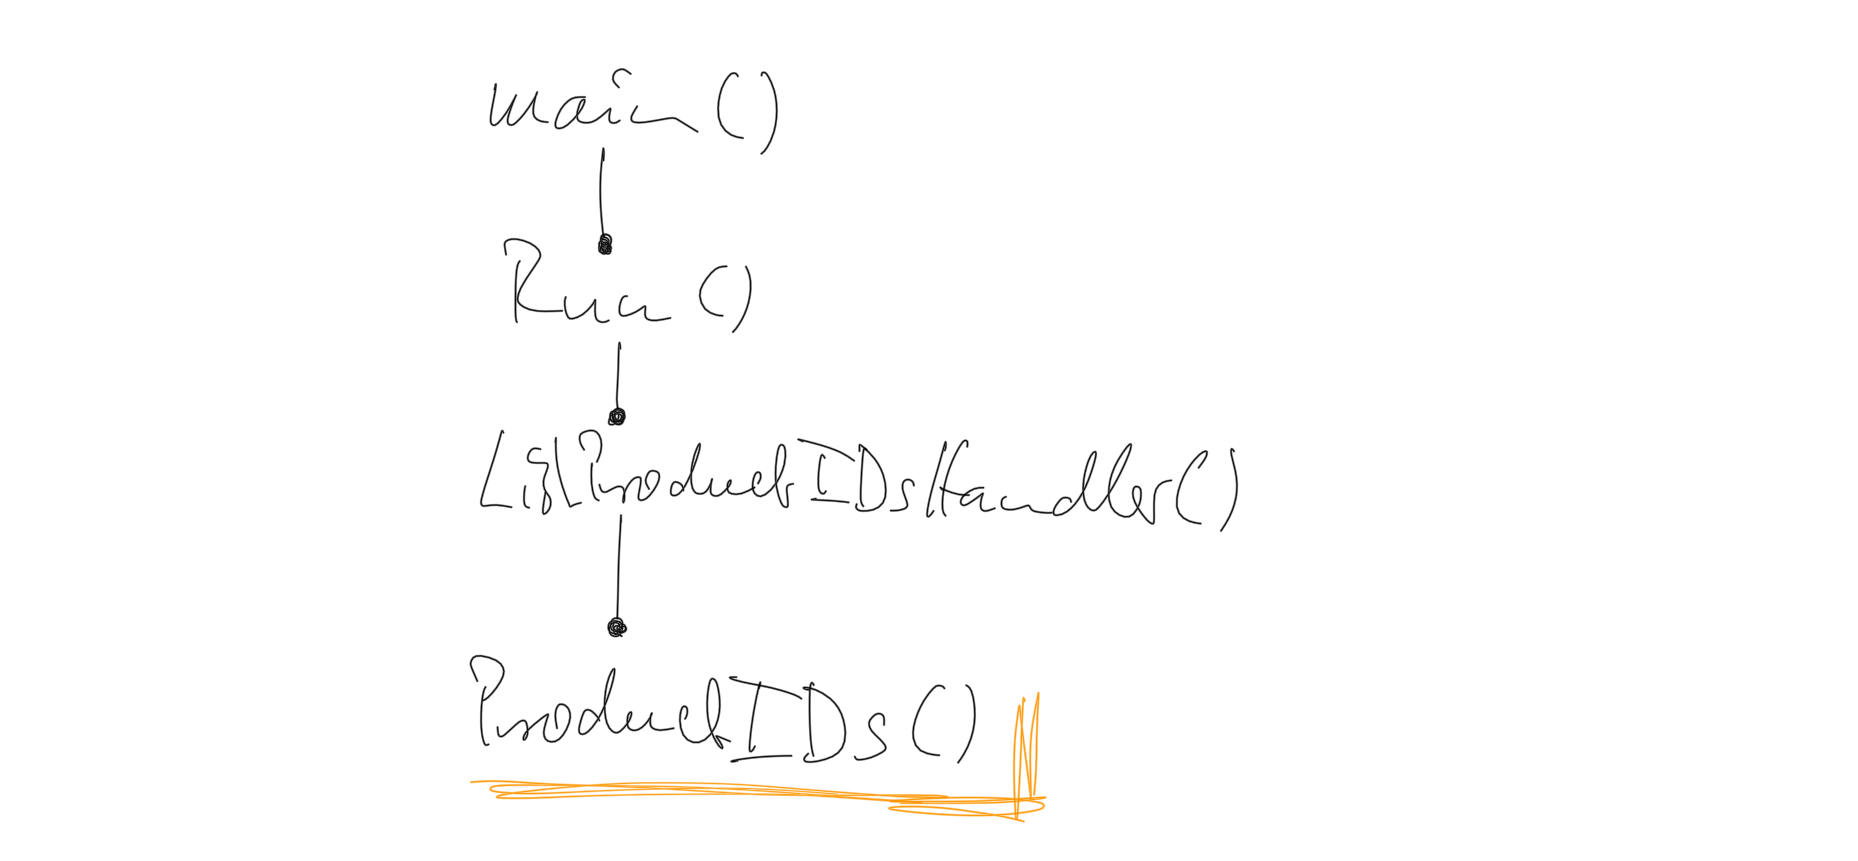 main()
Run()
ListProductIDsHandler()
ProductIDs()